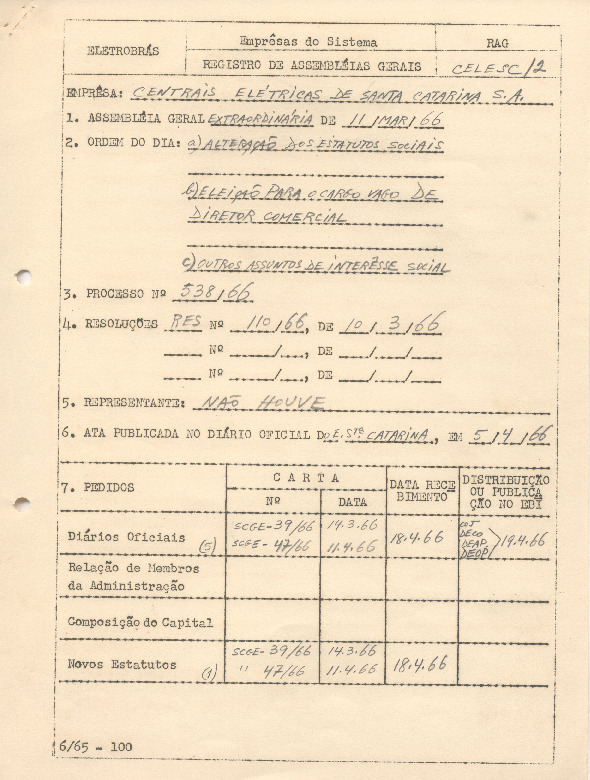 ELETROBRÁS
Emprêsas do Sistema
RAG
REGISTRO DE ASSEMBLÉIAS GERAIS
CELESC/2
EMPRÊSA: CENTRAIS ELÉTRICAS DE SANTA CATARINA S.A.
1. ASSEMBLÉIA GERAL EXTRAORDINÁRIA DE 11/MAR/66
2. ORDEM DO DIA: a) ALTERAÇÃO DOS ESTATUTOS SOCIAIS
b) ELEIÇÃO PARA O CARGO VAGO DE
DIRETOR COMERCIAL
c) OUTROS ASSUNTOS DE INTERÊSSE SOCIAL
3. PROCESSO Nº 538/66
4. RESOLUÇÕES RES Nº 110/66, DE 10/3/66
Nº / , DE / /
Nº / , DE / /
5. REPRESENTANTE: NÃO HOUVE
6. ATA PUBLICADA NO DIÁRIO OFICIAL DO E. STª CATARINA, EM 5/4/66
7. PEDIDOS
C A R T A
Nº
DATA
DATA RECE
BIMENTO
DISTRIBUIÇÃO
OU PUBLICA
ÇÃO NO EBI
Diários Oficiais (5)
SCGE-39/66 14.3.66
SCGE-47/66 11.4.66
18.4.66
DECO
DEAP
DEOP
19.4.66
Relação de Membros
da Administração
Composição do Capital
Novos Estatutos (1)
SCGE-39/66 14.3.66
" 47/66 11.4.66
18.4.66
6/65 - 100